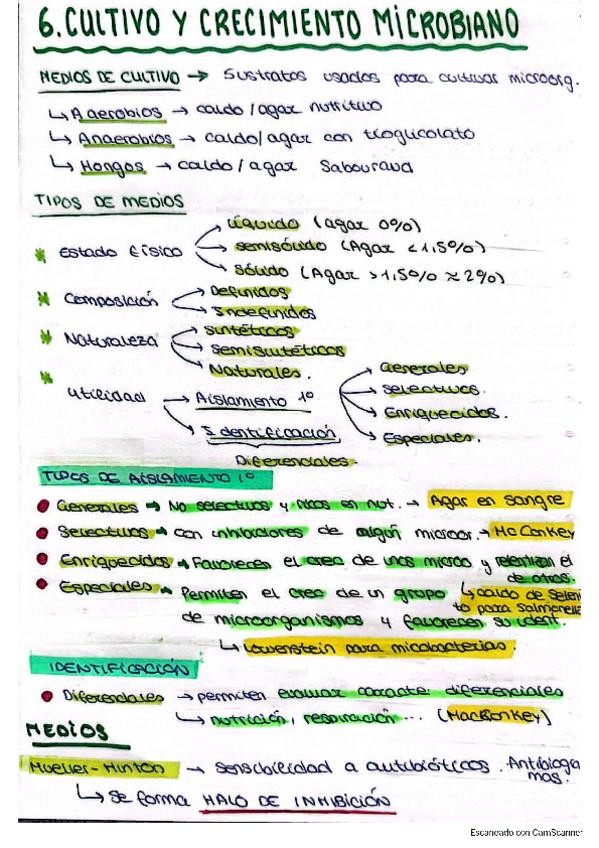 6. CULTIVO Y CRECIMIENTO MICROBIANO
MEDIOS DE CULTIVO → Sustratos usados para cultivar microorg.
↳ Aaerobios → caldo / agar nutritivo
↳ Anaerobios → caldo / agar con tioglicolato
↳ Hongos → caldo / agar Sabouraud
TIPOS DE MEDIOS
* Estado físico → Líquido (agar 0%)
→ semisólido (Agar < 1,5%)
→ Sólido (Agar > 1,5% ≈ 2%)
* Composición → Definidos
→ Indefinidos
* Naturaleza → Sintéticos
→ Semisintéticos
→ Naturales.
* Utilidad → Aislamiento 1º
→ Generales
→ Selectivos.
→ Enriquecidos.
→ Especiales.
→ Identificación
Diferenciales.
TIPOS DE AISLAMIENTO 1º
• Generales → No selectivos y ricos en nut. → Agar en sangre
• Selectivos → con inhibidores de algún microor. → Mc Conkey
• Enriquecidos → Favorecen el crec de unos microo y relentizan el
de otros.
↳ caldo de Seleni
to para Salmonella
• Especiales → Permiten el crec de un grupo
de microorganismos y favorecen su ident.
↳ Lowenstein para micobacterias.
IDENTIFICACIÓN
• Diferenciales → permiten evaluar caracte. diferenciales
↳ nutrición, respiración... (MacConkey)
MEDIOS
Mueller-Hinton → sensibilidad a antibióticos. Antibiogra
mas.
↳ Se forma HALO DE INHIBICIÓN
Escaneado con CamScanner